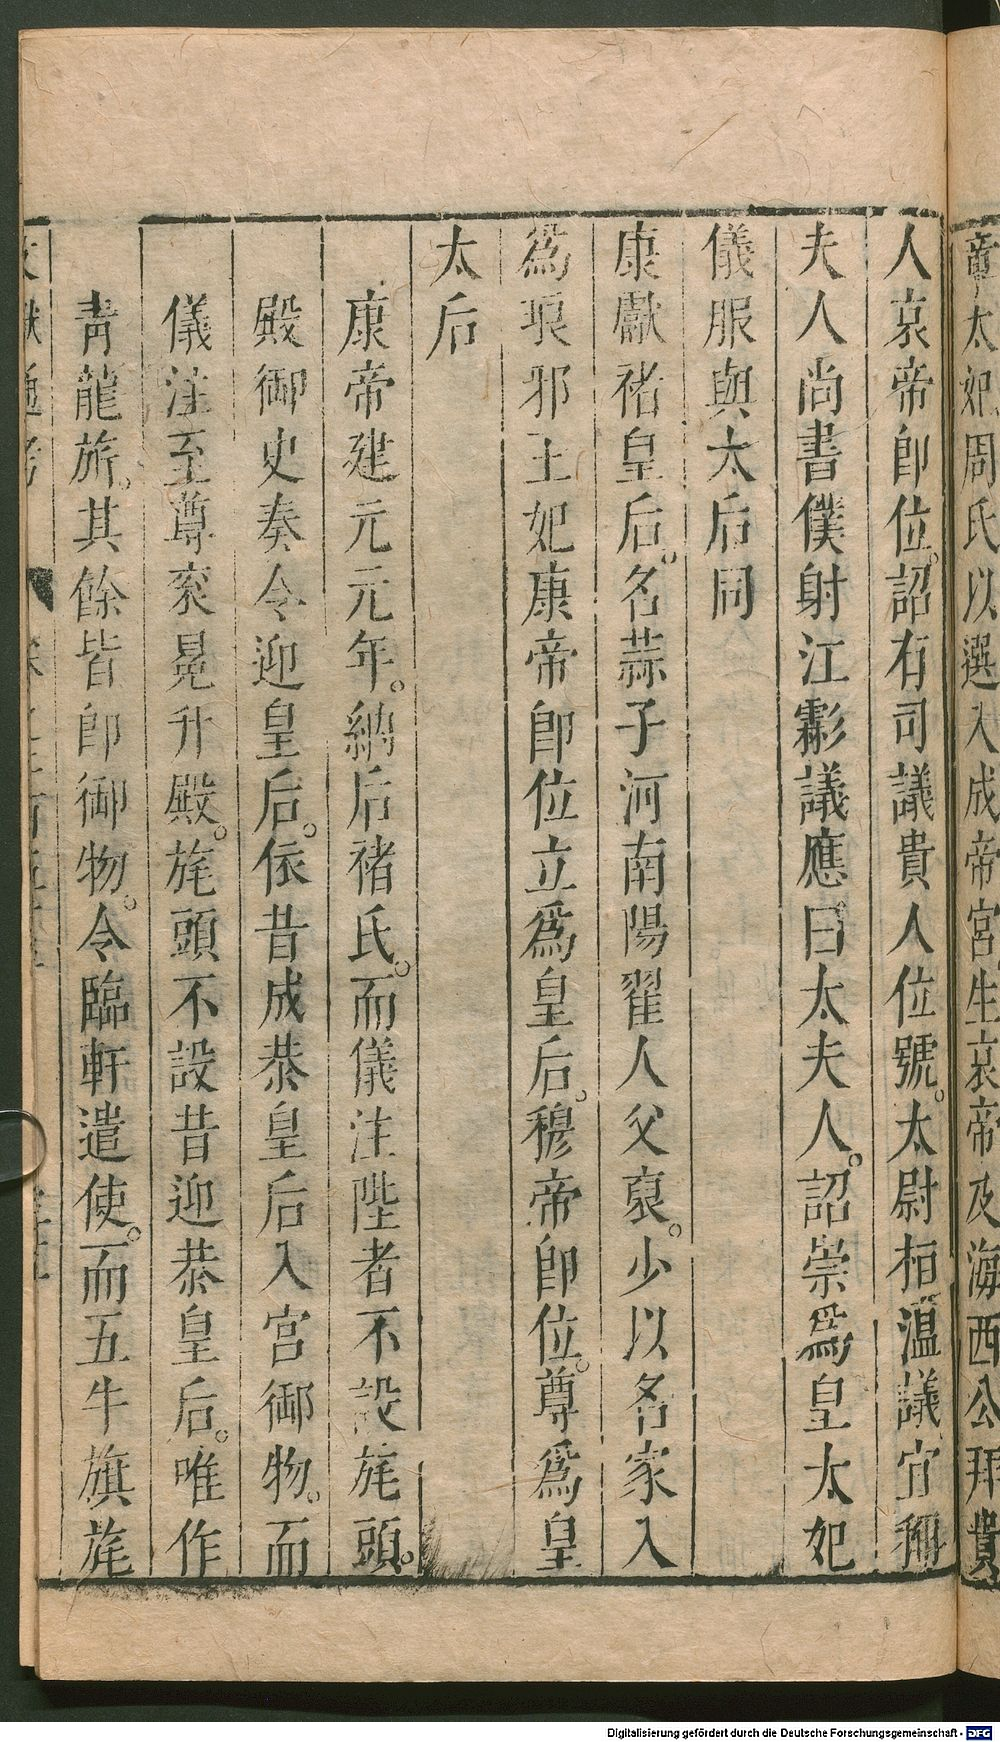 章太妃周氏以選入成帝宮生哀帝及海西公拜貴
人哀帝卽位。詔有司議貴人位號。太尉桓溫議宜稱
夫人尚書僕射江虨議應曰太夫人。詔崇爲皇太妃
儀服與太后同
康獻褚皇后。名蒜子河南陽翟人父裒。少以名家入
爲琅邪王妃康帝卽位立爲皇后。穆帝卽位。尊爲皇
太后
康帝建元元年。納后褚氏。而儀注陛者不設旄頭。
殿御史奏令迎皇后。依昔成恭皇后入宮御物。而
儀注至尊衮冕升殿。旄頭不設昔迎恭皇后。唯作
青龍旂。其餘皆卽御物。今臨軒遣使。而五牛旗旄
文獻通考
Digitalisierung gefördert durch die Deutsche Forschungsgemeinschaft - DFG